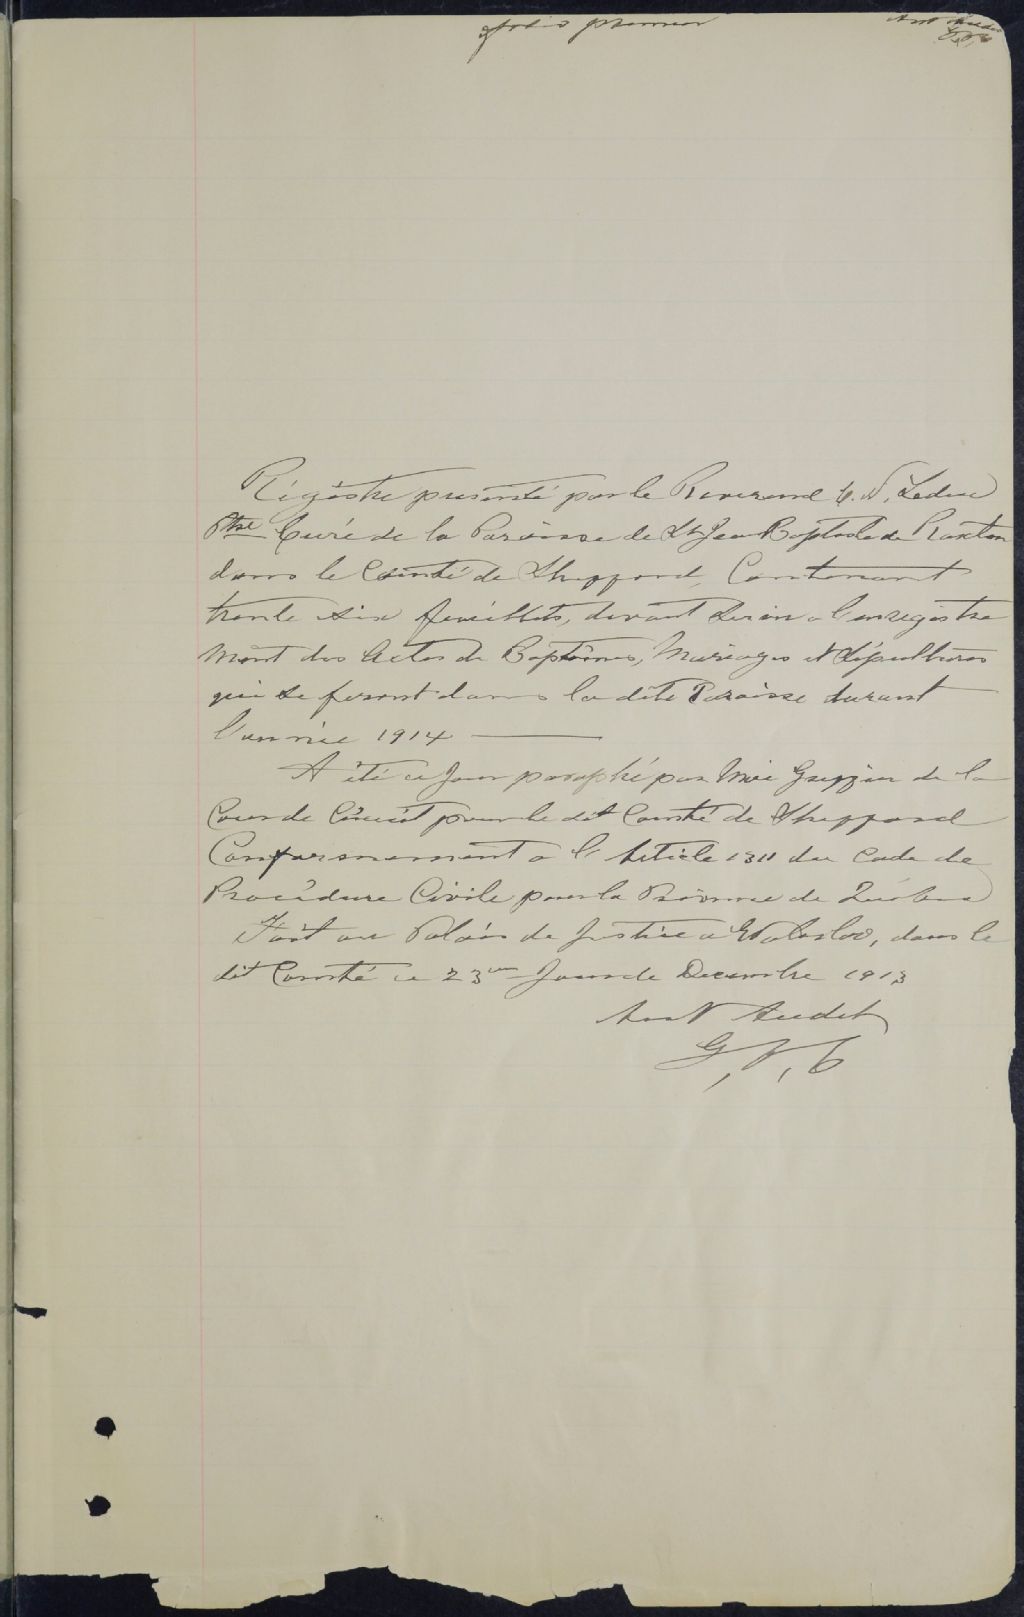 folio premier
Ant Audet
G.C.C
Régistre presenté par le Reverend C. N. Leduc
Ptre Curé de la Paroisse de St Jean Baptiste de Roxton
dans le Comté de Shefford, Contenant
trente six feuillets, devant servir a l'enregistre
ment des Actes de Baptêmes, Mariages et Sépultures
qui se feront dans la dite Paroisse durant
l'année 1914
A été ce Jour paraphé par Moi Greffier de la
Cour de Circuit pour le dit Comté de Shefford
Conformement a l'Article 1311 du Code de
Procédure Civile pour la Province de Québec
Fait au Palais de Justice a Waterloo, dans le
dit Comté ce 23 Jour de Decembre 1913
Ant Audet
G.C.C